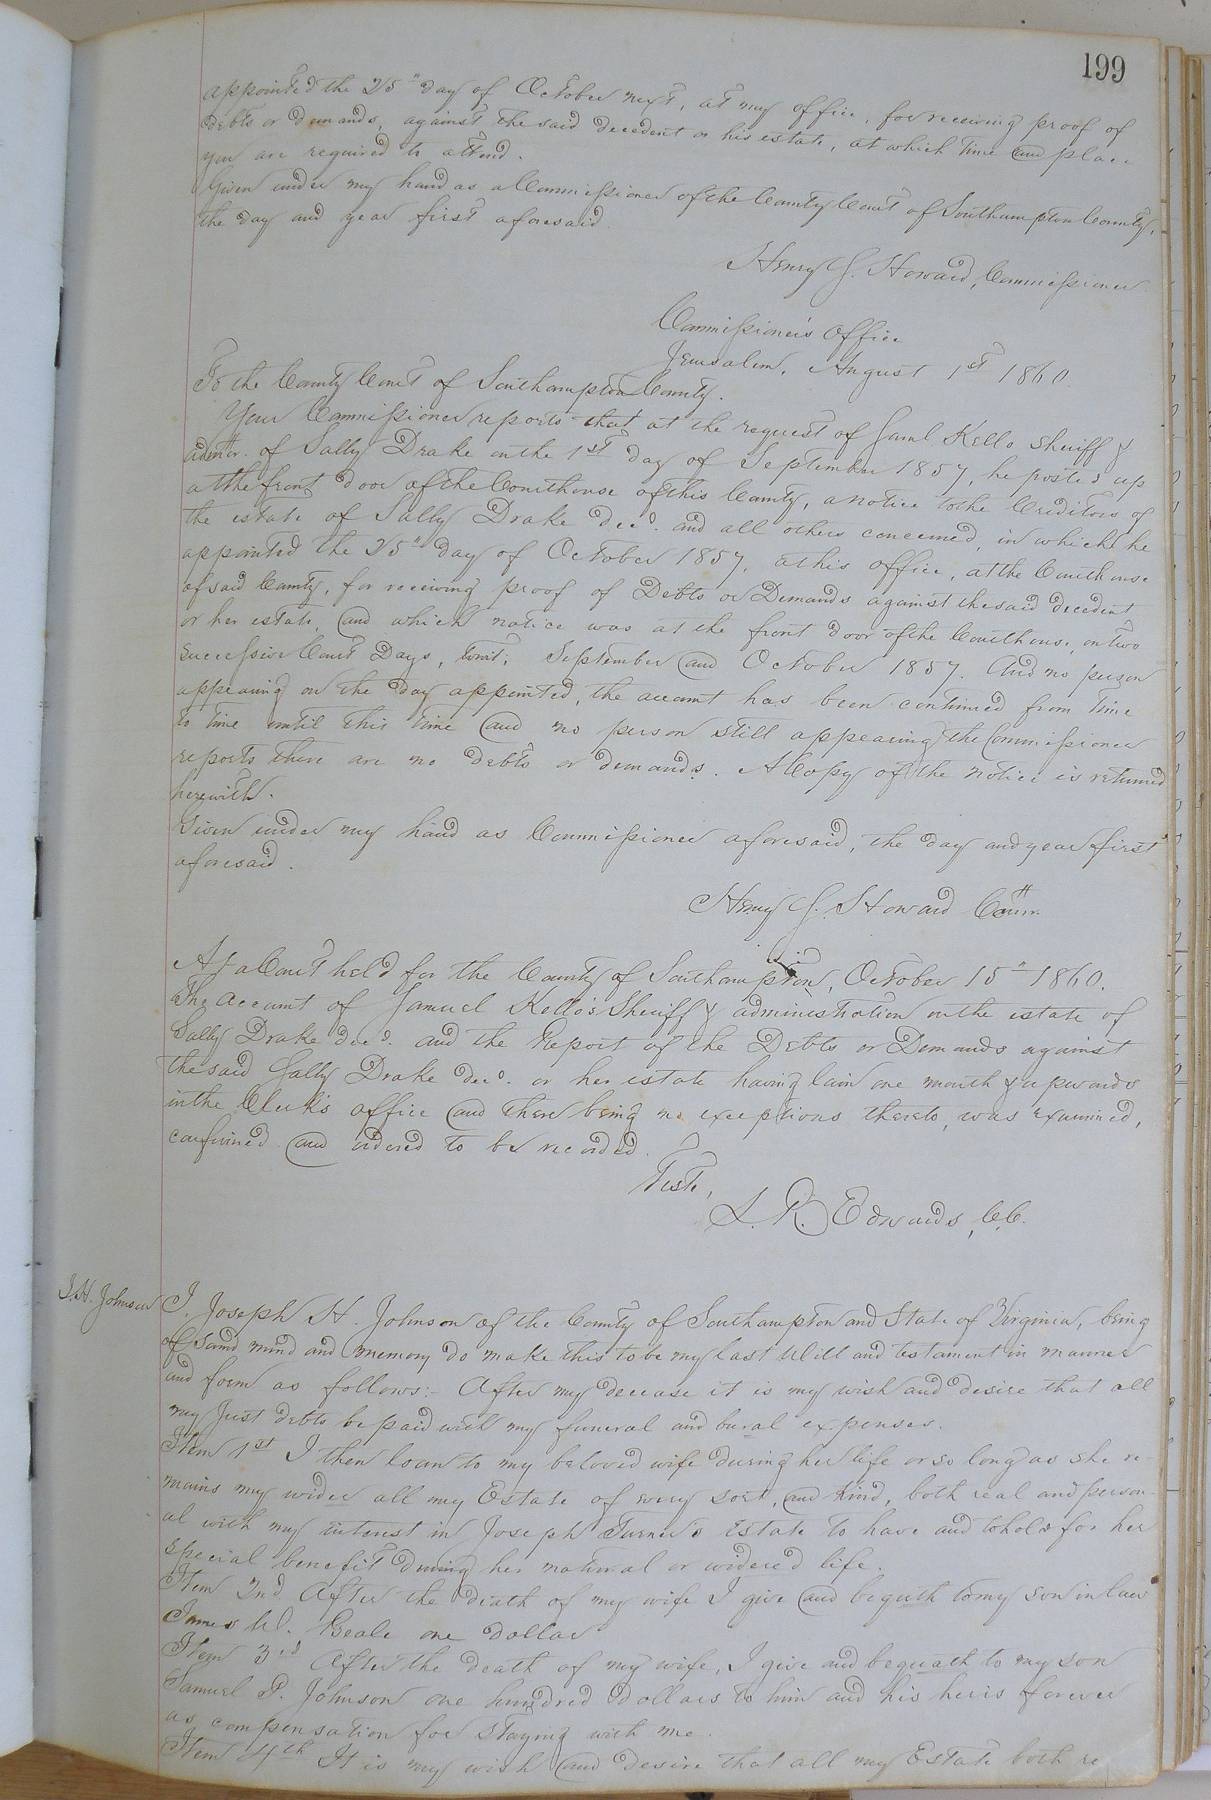 199
appointed the 25" day of October next, at my office, for receiving proof of
debts or demands, against the said decedent or his estate, at which time and place
you are required to attend.
Given under my hand as a Commissioner of the County Court of Southampton County,
the day and year first aforesaid.
Henry J. Howard, Commissioner
Commissioner's Office
Jerusalem, August 1st 1860.
To the County Court of Southampton County.
Your Commissioner reports that at the request of Saml Kello Sheriff &
admr. of Sally Drake on the 1st day of September 1857, he posted up
at the front door of the Courthouse of this County, a notice to the Creditors of
the estate of Sally Drake decd. and all others concerned, in which he
appointed the 25" day of October 1857, at his office, at the Courthouse
of said County, for receiving proof of Debts or Demands against the said decedent
or her estate, and which notice was at the front door of the Courthouse, on two
successive Court Days, towit; September and October 1857. And no person
appearing on the day appointed, the account has been continued from time
to time until this time and no person still appearing the Commissioner
reports there are no debts or demands. A Copy of the notice is returned
herewith.
Given under my hand as Commissioner aforesaid, the day and year first
aforesaid.
Henry J. Howard Comr.
At a Court held for the County of Southampton, October 15" 1860.
The account of Samuel Kello's Sheriff & administration on the estate of
Sally Drake decd. and the Report of the Debts or Demands against
the said Sally Drake decd. or her estate having lain one month & upwards
in the Clerk's office and there being no exceptions thereto, was examined,
confirmed and ordered to be recorded.
Teste,
L. R. Edwards, C.C.
J. H. Johnson
I, Joseph H. Johnson of the County of Southampton and State of Virginia, being
of sound mind and memory do make this to be my Last Will and testament in manner
and form as follows:- After my decease it is my wish and desire that all
my Just debts be paid with my funeral and burial expenses.
Item 1st I then loan to my beloved wife during her life or so long as she re-
mains my wider all my Estate of every sort, and kind, both real and person-
al with my interest in Joseph Turner's Estate to have and to hold for her
special benefit during her natural or widered life.
Item 2nd After the death of my wife I give and bequth to my son in law
James W. Beale one dollar
Item 3rd After the death of my wife, I give and bequath to my son
Samuel P. Johnson one hundred dollars to him and his heris forever
as compensation for staying with me.
Item 4th It is my wish and desire that all my Estate both re